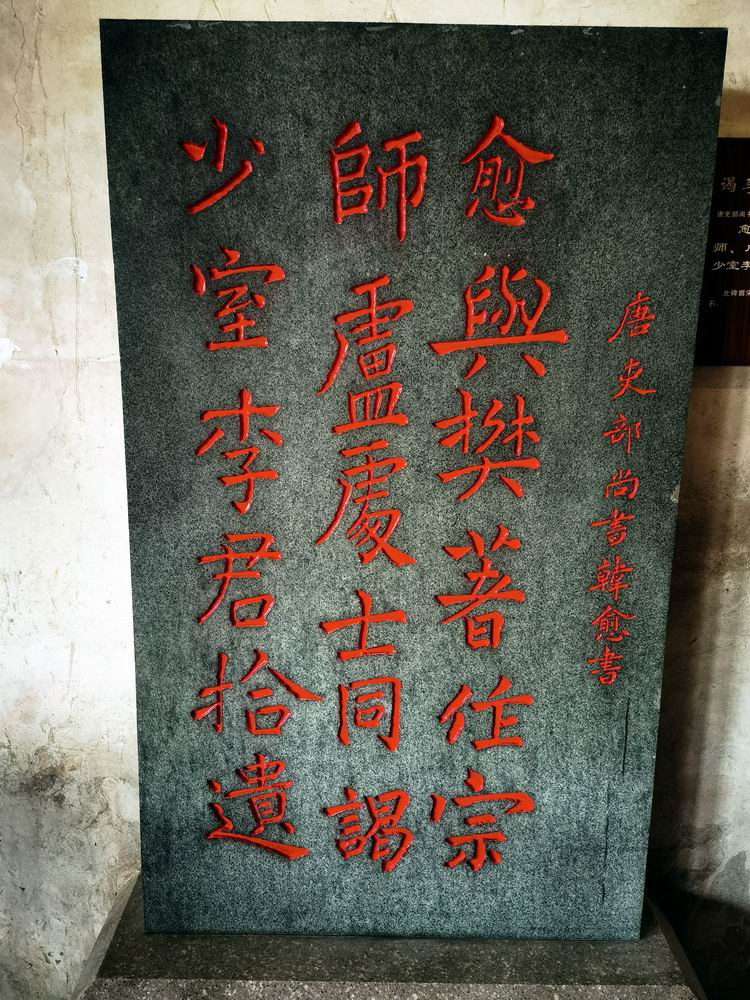 唐吏部尚書韓愈書
愈與樊著作宗
師盧處士同謁
少室李君拾遺
唐吏部尚
愈
师、
少室李
此碑
石。